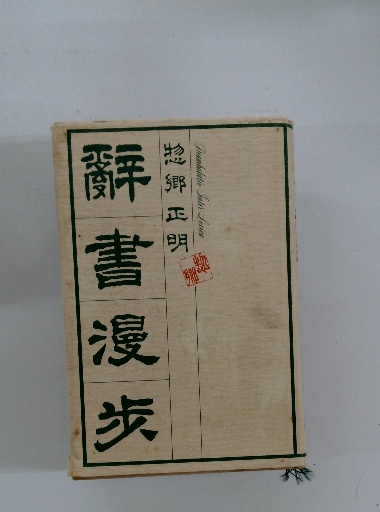 辭書漫步
惣郷正明
Deambulatio Inter Lexica